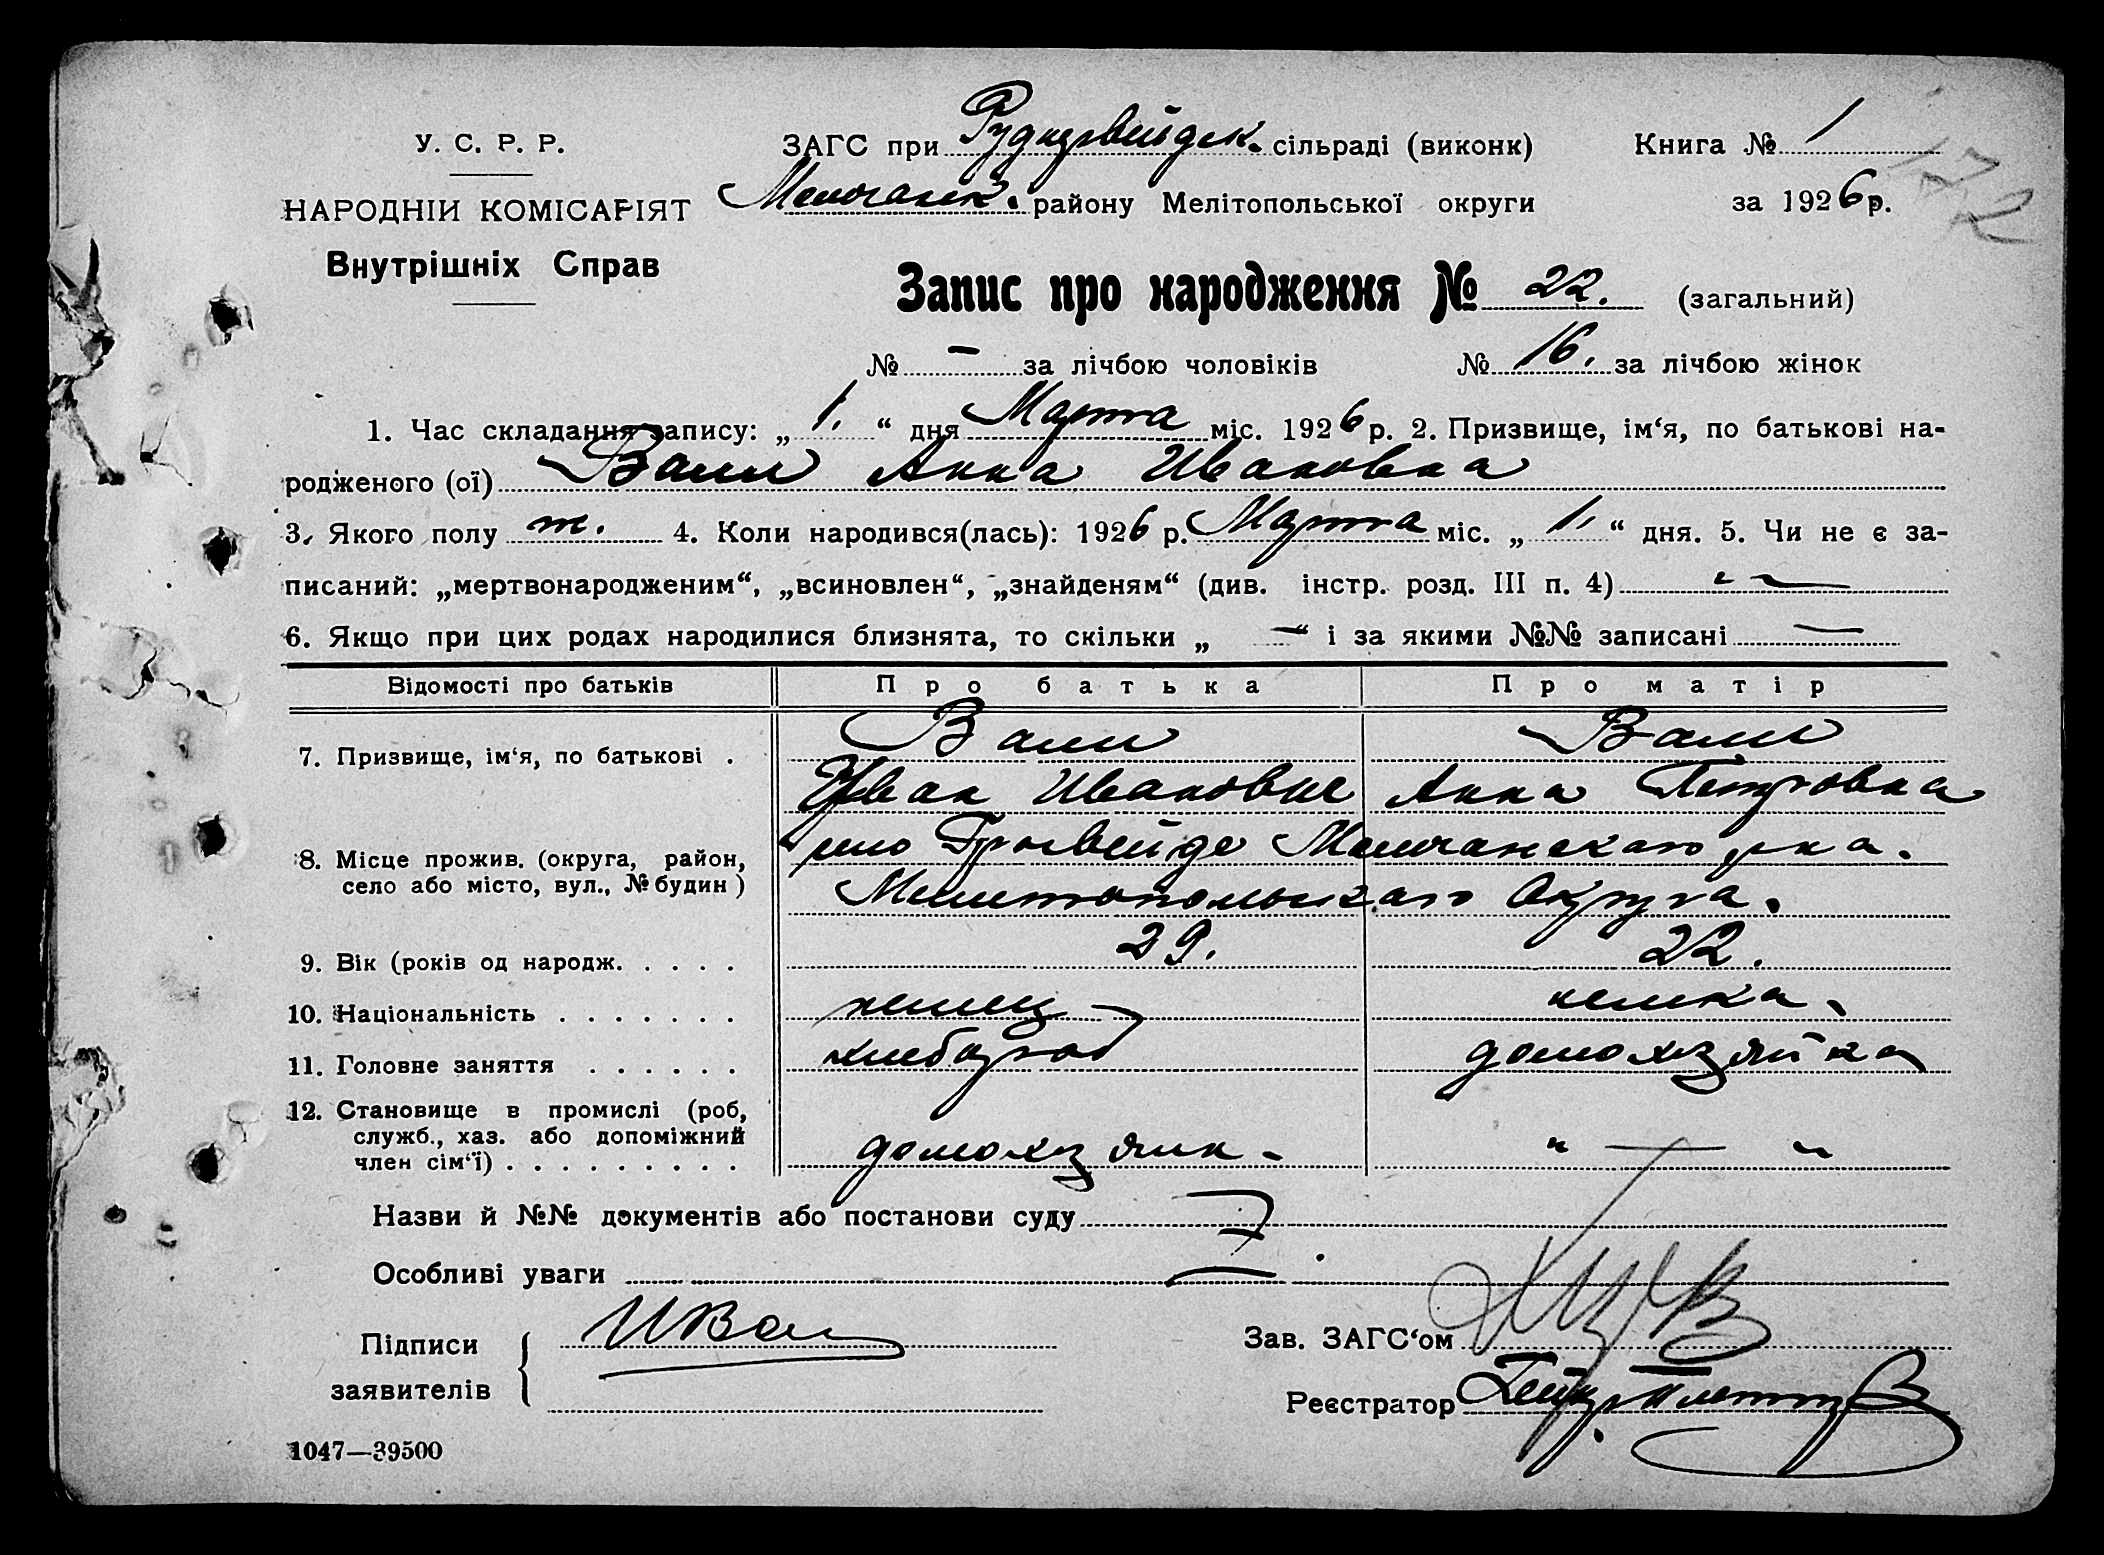 У. С. Р. Р.
НАРОДНІЙ КОМІСАРІЯТ
Внутрішніх Справ
ЗАГС при Руднервейдск. сільраді (виконк)
Молочанск. району Мелітопольської округи
Книга № 1
за 1926 р.
172
Запис про народження № 22. (загальний)
№ — за лічбою чоловіків № 16. за лічбою жінок
1. Час складання запису: „ 1. “ дня Марта міс. 1926 р. 2. Призвище, ім‘я, по батькові на-
родженого (ої) Валл Анна Ивановна
3. Якого полу ж. 4. Коли народився(лась): 1926 р. Марта міс. „ 1. “ дня. 5. Чи не є за-
писаний: „мертвонародженим“, „всиновлен“, „знайденям“ (див. інстр. розд. III п. 4) —
6. Якщо при цих родах народилися близнята, то скільки „ — “ і за якими №№ записані —
Відомості про батьків Про батька Про матір
7. Призвище, ім‘я, по батькові . Валл Валл
Иван Ивановис Анна Петровна
8. Місце прожив. (округа, район, Молочанскаго р-на.
село або місто, вул., № будин) Мелитопольскаго Округа.
9. Вік (років од народж. . . . . 29. 22.
10. Національність . . . . . . . немец немка.
11. Головне заняття . . . . . . хлебороб домохзяйка
12. Становище в промислі (роб,
служб., хаз. або допоміжний
член сім‘ї) . . . . . . . . . домохзяин - „ — “
Назви й №№ документів або постанови суду —
Особливі уваги —
Підписи
заявителів
И Вал
Зав. ЗАГС‘ом
Реєстратор
1047—39500